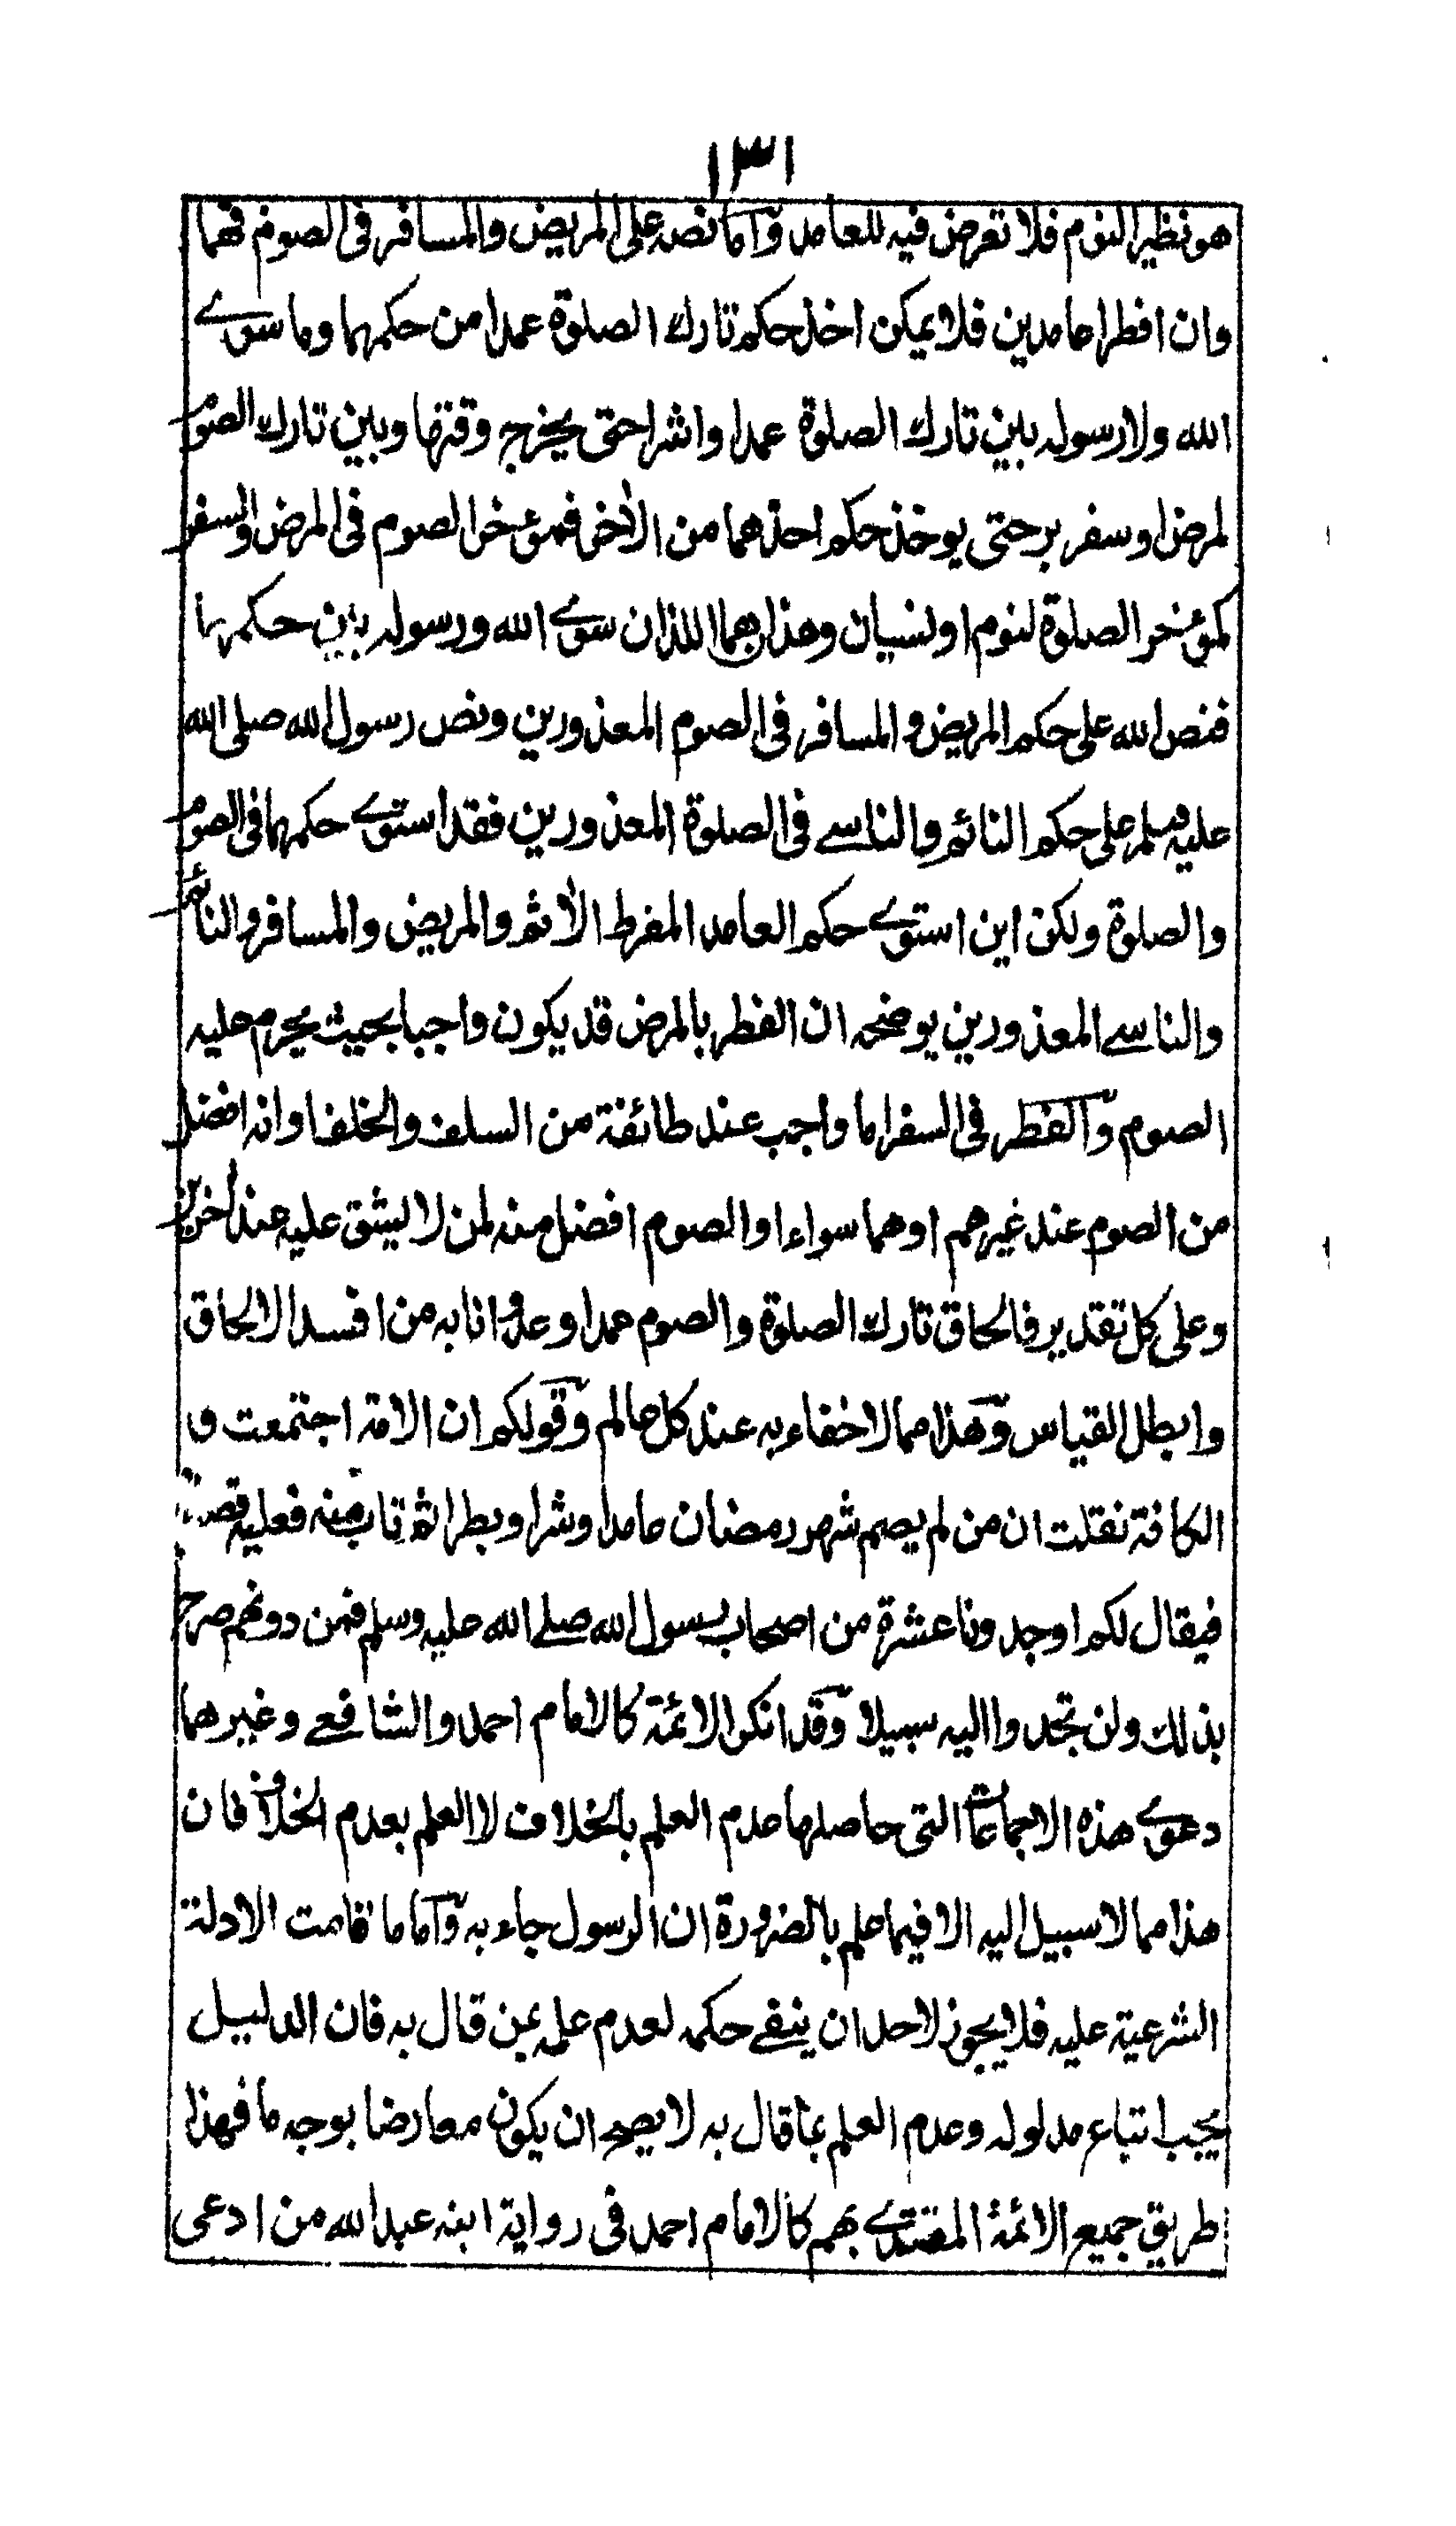 ١٣١
هو نظير النوم فلا تعرض فيه للعامد وآما نصه على المريض والمسافر فى الصوم فهما
وان افطرا عامدين فلا يمكن اخذ حكم تارك الصلوة عمدا من حكمهما وما سوے
الله ولا رسوله بين تارك الصلوة عمدا واشرا حتى يخرج وقتها وبين تارك الصوم
لمرض او سفر بر حتى يوخذ حكم احدهما من الاٰخر فموٴخر الصوم فى المرض والسفر
كموٴخر الصلوة لنوم او نسيان وهذا هما اللذان سوے الله ورسوله بين حكمهما
فنص الله على حكم المريض والمسافر فى الصوم المعذورين ونص رسول الله صلى الله
عليه وسلم على حكم النائم والناسے فى الصلوة المعذورين فقد استوے حكمهما فى الصوم
والصلوة ولكن اين استوے حكم العامد المفرط الاٰثم والمريض والمسافر والنائم
والناسے المعذورين يوضحه ان الفطر بالمرض قد يكون واجبا بحيث يحرم عليه
الصوم وآلفطر فى السفر اما واجب عند طائفة من السلف والخلف او انه افضل
من الصوم عند غيرهم او هما سواء او الصوم افضل منه لمن لا يشق عليه عند اٰخرين
وعلى كل تقدير فالحاق تارك الصلوة والصوم عمدا وعدوانا به من افسد الالحاق
وابطل القياس وهٓذا مما لا خفاء به عند كل عالم وقٓولكم ان الامة اجتمعت و
الكافة نقلت ان من لم يصم شهر رمضان عامدا وشرا وبطرا ثم تاب منه فعليه قصه
فيقال لكم اوجدونا عشرة من اصحاب رسول الله صلے الله عليه وسلم فمن دونهم صرح
بذلك ولن تجدوا اليه سبيلا وقٓد انكر الائمة كالامام احمد والشافعے وغيرهما
دعوے هذه الاجماعات التى حاصلها عدم العلم بالخلاف لا العلم بعدم الخلاف فان
هذا مما لا سبيل اليه الا فيما علم بالضرورة ان الرسول جاء به وآما ما قامت الادلة
الشرعية عليه فلا يجوز لاحد ان ينفے حكمه لعدم علمه بمن قال به فان الدليل
يجب اتباع مدلوله وعدم العلم بما قال به لا يصح ان يكون معارضا بوجه ما فهذا
طريق جميع الائمة المقتدے بهم كالامام احمد فى رواية ابنه عبد الله من ادعى